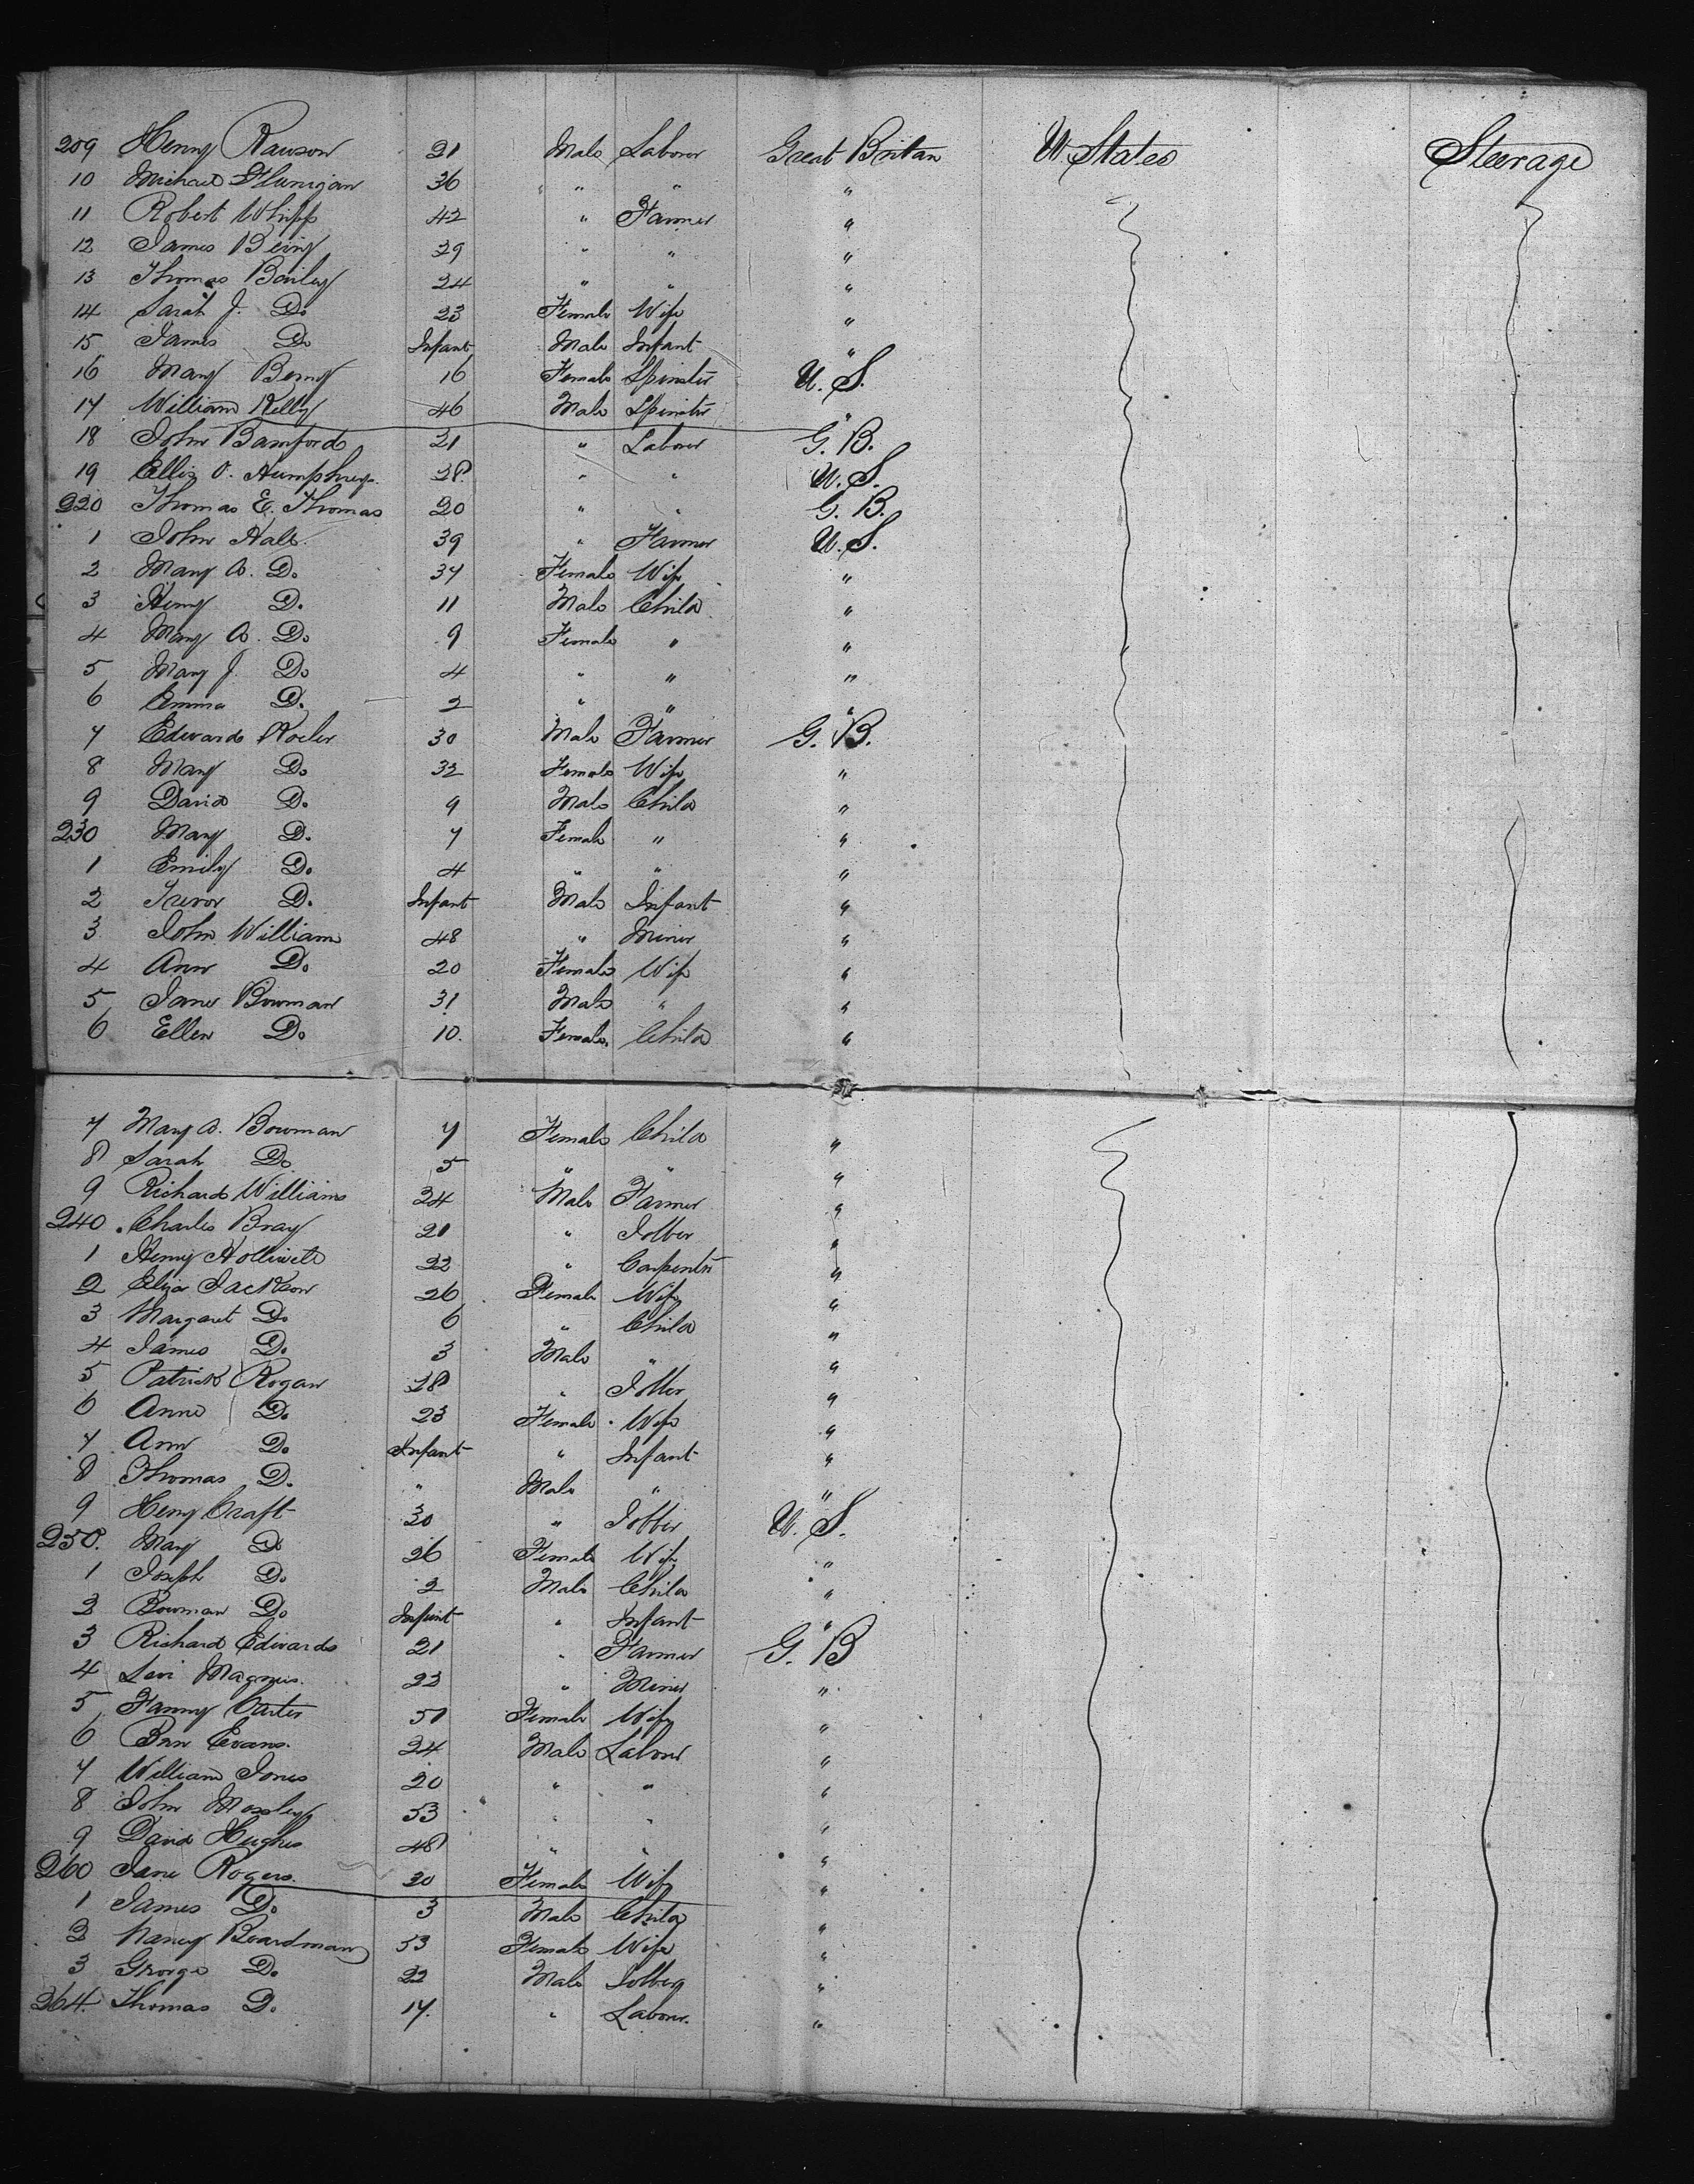 209 Henry Rawson 21 Male Laborer Great Britan U States Steerage
10 Michael Flanigan 36 " " "
11 Robert Whipp 42 " Farmer "
12 James 29 " " "
13 Thomas Bailey 24 " " "
14 Sarah J. Do 23 Female Wife "
15 James Do Infant Male Infant "
16 Mary Berry 16 Female Spinster U.S.
17 William Kelly 46 Male Spinster "
18 John Bamford 21 " Laborer G.B.
19 Ellis O. Humphreys 28 " " U.S.
220 Thomas E. Thomas 20 " " G.B.
1 John Hale 39 " Farmer U.S.
2 Mary A. Do 34 Female Wife "
3 Henry Do 11 Male Child "
4 Mary A. Do 9 Female " "
5 Mary J. Do 4 " " "
6 Emma Do 2 " " "
7 Edward 30 Male Farmer G.B.
8 Mary Do 32 Female Wife "
9 David Do 9 Male Child "
230 Mary Do 7 Female " "
1 Emily Do 4 " " "
2 Trevor Do Infant Male Infant "
3 John William 48 " Miner "
4 Ann Do 20 Female Wife "
5 Jane Bowman 31 Male " "
6 Ellen Do 10. Female Child "
7 Mary A. Bowman 7 Female Child "
8 Sarah Do 5 " " "
9 Richard Williams 24 Male Farmer "
240 Charles Bray 21 " Jobber "
1 Henry 22 " Carpenter "
2 Eliza Jackson 26 Female Wife "
3 Margaret Do 6 " Child "
4 James Do 3 Male " "
5 Patrick Rogan 28 " Jobber "
6 Anne Do 23 Female Wife "
7 Ann Do Infant " Infant "
8 Thomas Do " Male " "
9 Henry Craft 30 " Jobber U.S.
250. Mary Do 26 Female Wife "
1 Joseph Do 2 Male Child "
2 Bowman Do Infant " Infant "
3 Richard Edwards 21 " Farmer G.B
4 Levi Magnus. 22 " Miner "
5 Fanny Carter 51 Female Wife "
6 Evans. 24 Male Laborer "
7 William Jones 20 " " "
8 John Mosley 53 " " "
9 David Hughes 48 " " "
260 Jane Rogers. 20 Female Wife "
1 James Do 3 Male Child "
2 Nancy Boardman 53 Female Wife "
3 George Do 22 Male "
264 Thomas Do 17. " Laborer. "